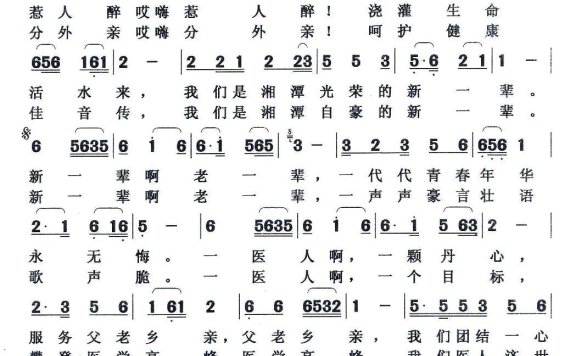 惹人醉哎嗨惹人醉！浇灌生命
分外亲哎嗨分外亲！呵护健康
656 161 | 2 － | 2 21 2 23 | 5 5 3 | 5·6 21 | 1 －
活水来，我们是湘潭光荣的新一辈。
佳音传，我们是湘潭自豪的新一辈。
6 5635 | 6 1 6 | 6·1 565 | 3 － | 3 2 3 5 6 | 656 1
新一辈啊老一辈，一代代青春年华
新一辈啊老一辈，一声声豪言壮语
2·1 6 16 | 5 － | 6 5635 | 6 1 6 | 6·1 5 63 | 2 －
永无悔。一医人啊，一颗丹心，
歌声脆。一医人啊，一个目标，
2·3 5 6 | 1 61 2 | 6 6 6532 | 1 － | 5·5 5 3 | 5 6
服务父老乡亲，父老乡亲，我们团结一心